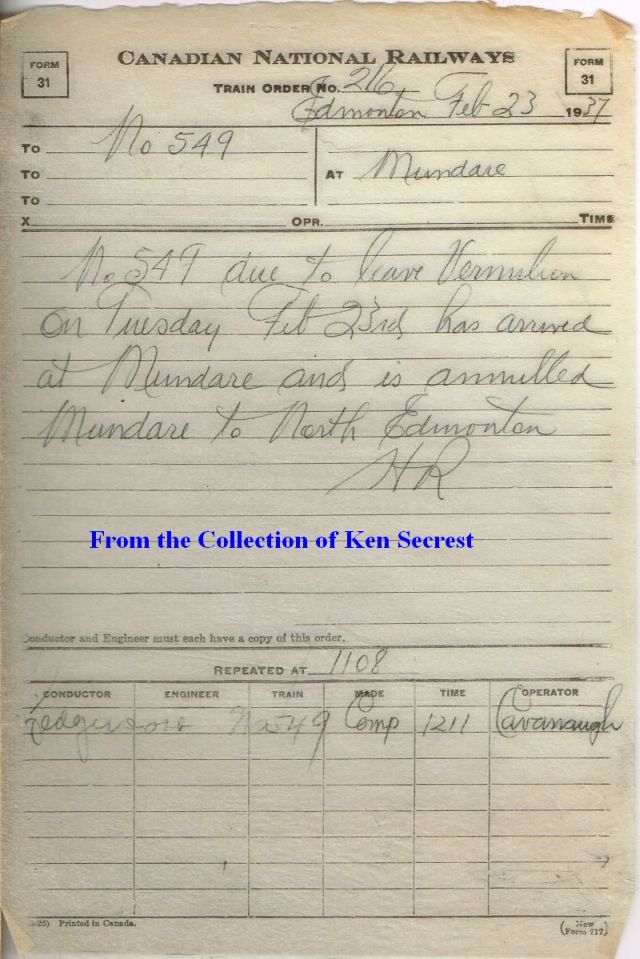 FORM 31
CANADIAN NATIONAL RAILWAYS
FORM 31
TRAIN ORDER NO. 216
Edmonton Feb 23 1937
TO No 549
TO
AT Mundare
TO
X OPR. TIME
No 549 due to leave Vermilion
on Tuesday Feb 23rd has arrived
at Mundare and is annulled
Mundare to North Edmonton
HR
From the Collection of Ken Secrest
Conductor and Engineer must each have a copy of this order.
REPEATED AT 1108
CONDUCTOR ENGINEER TRAIN MADE TIME OPERATOR
No 549 Comp 1211 Cavanaugh
Printed in Canada.
(New Form 717)